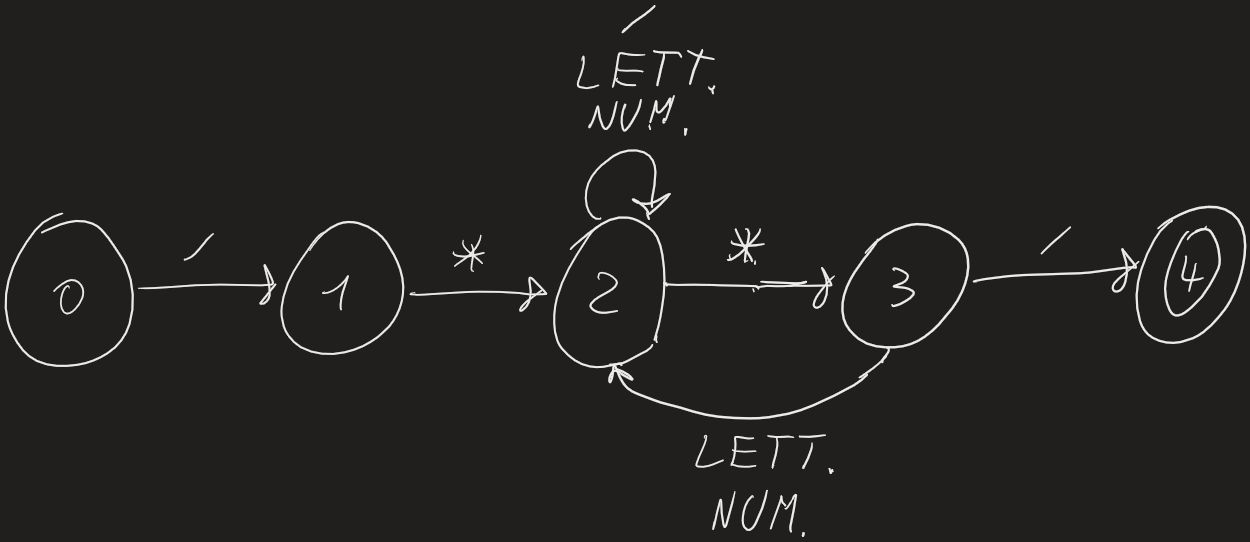 /
LETT.
NUM.
0 / 1 * 2 * 3 / 4
LETT.
NUM.